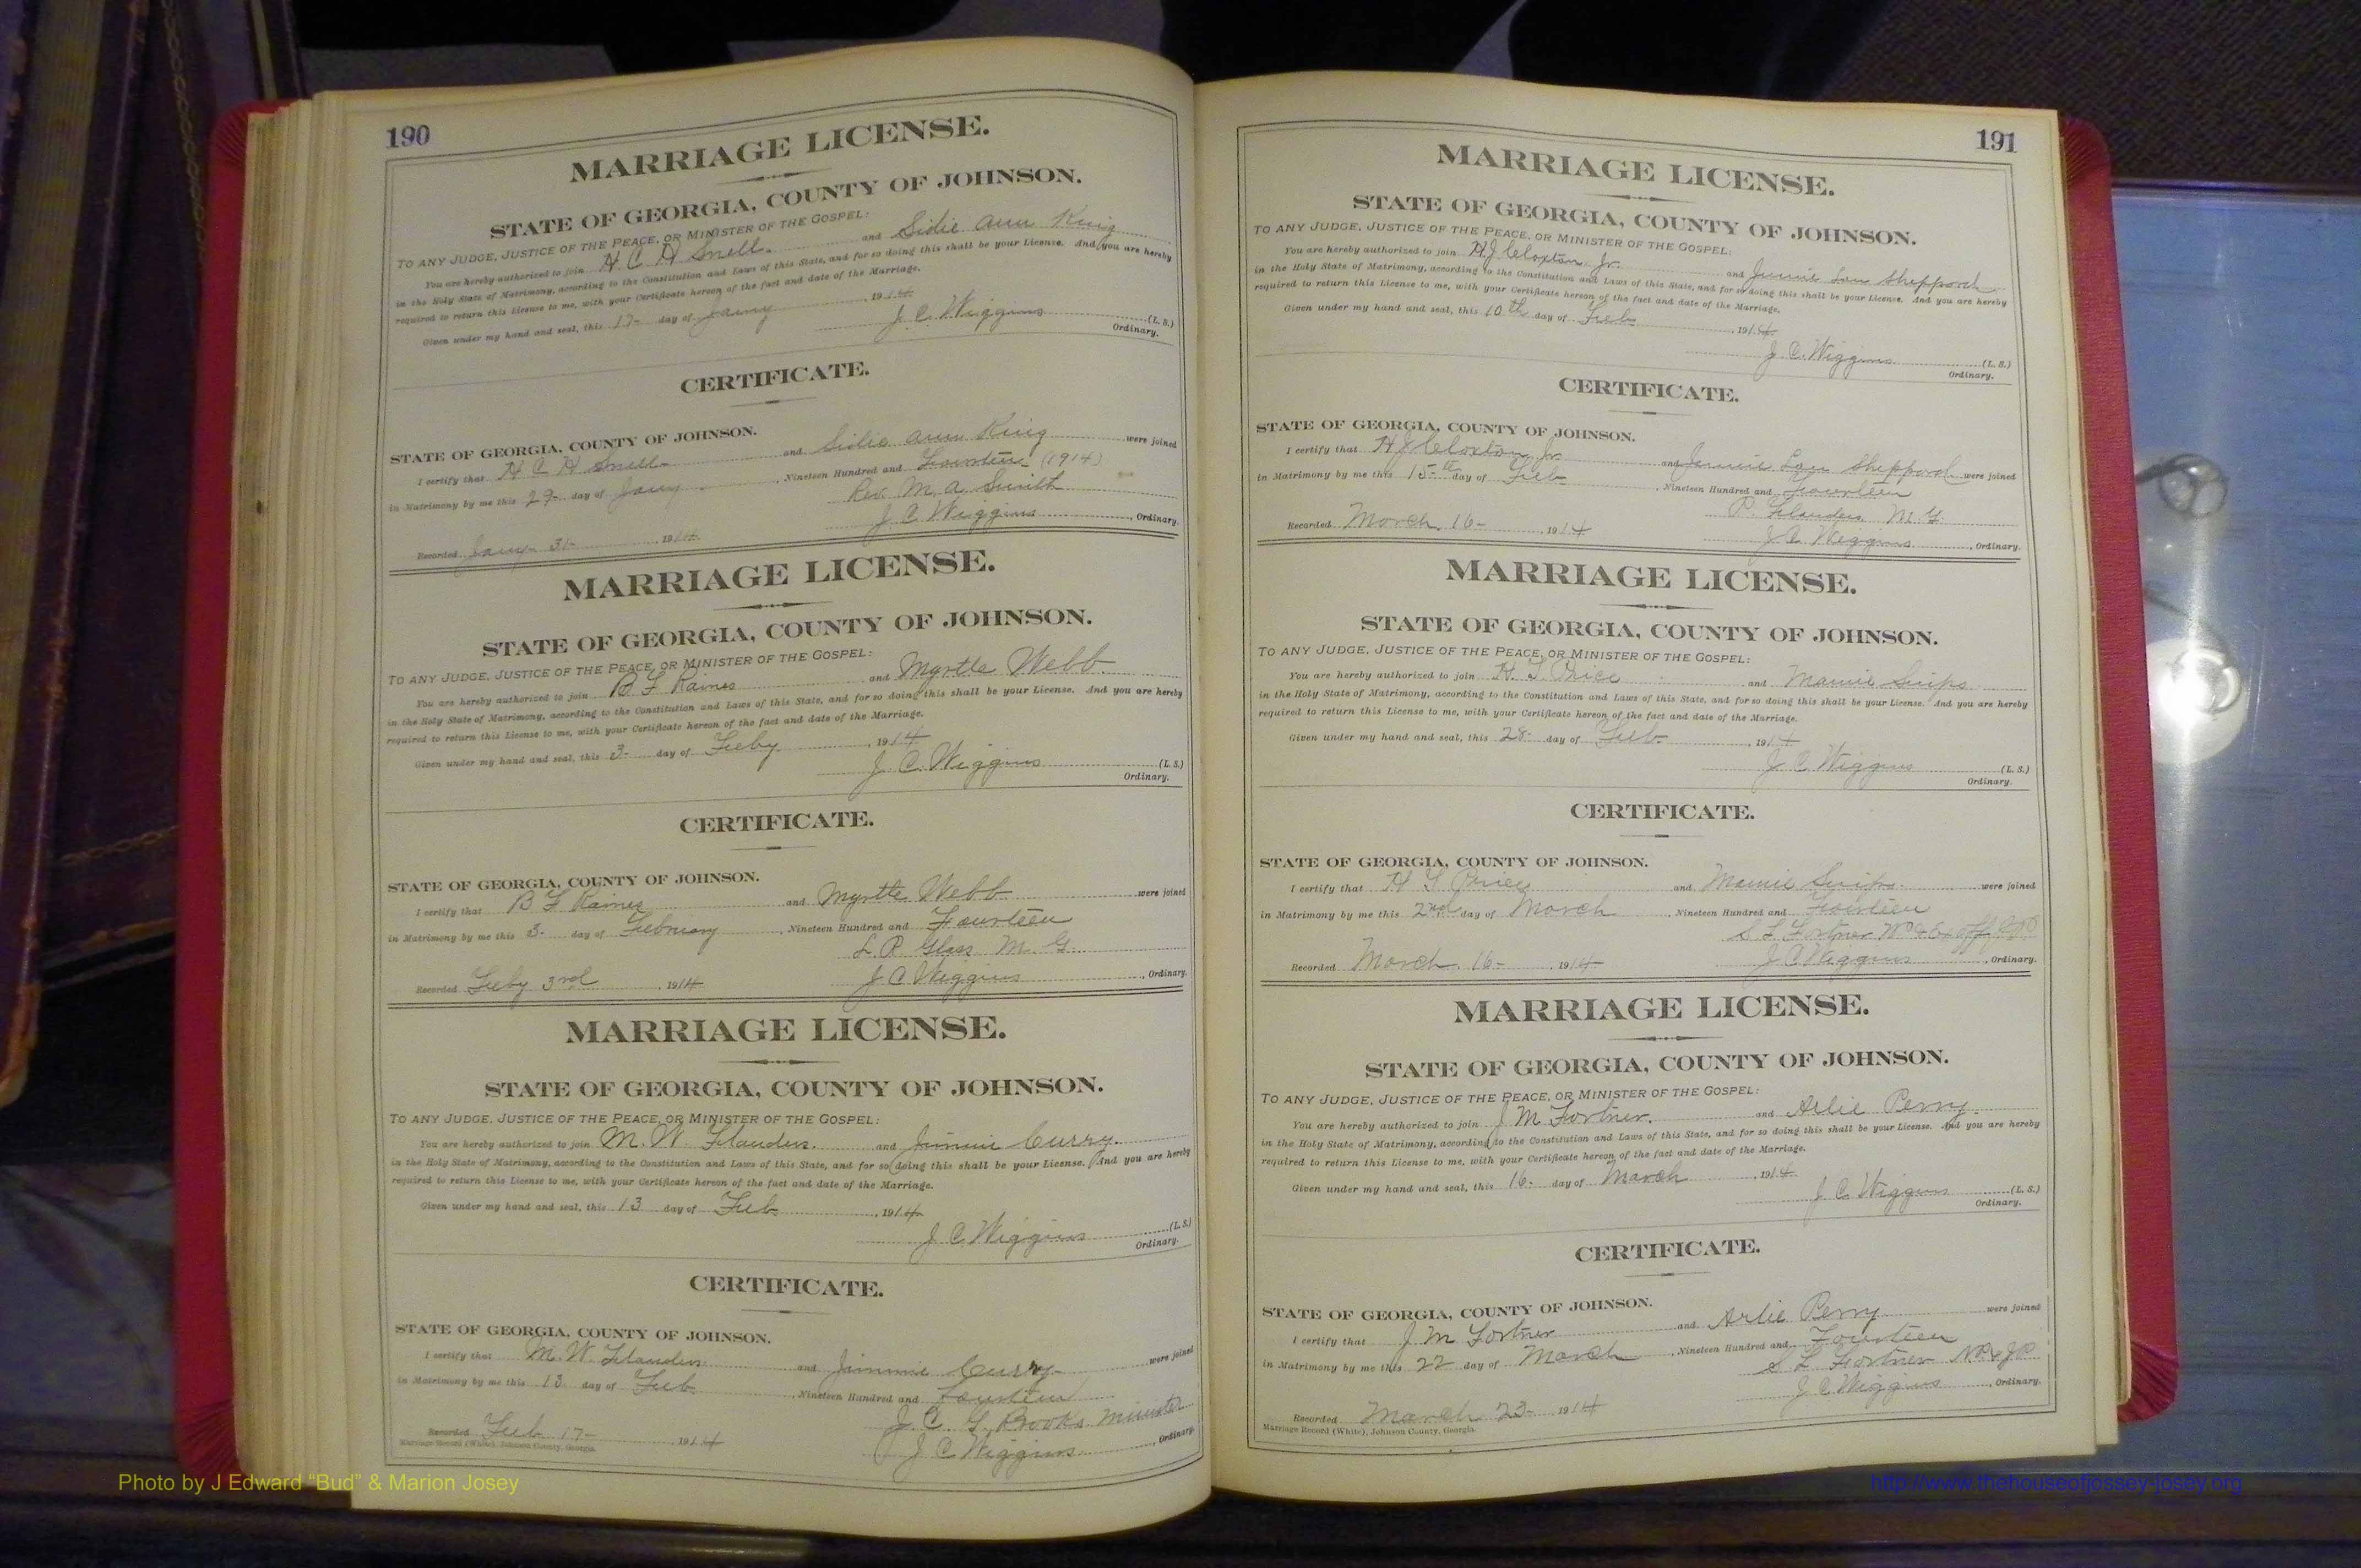 190
MARRIAGE LICENSE.
STATE OF GEORGIA, COUNTY OF JOHNSON.
TO ANY JUDGE, JUSTICE OF THE PEACE, OR MINISTER OF THE GOSPEL:
You are hereby authorized to join H. C. H Snell. and Sidie Ann King
in the Holy State of Matrimony, according to the Constitution and Laws of this State, and for so doing this shall be your License. And you are hereby
required to return this License to me, with your Certificate hereon of the fact and date of the Marriage.
Given under my hand and seal, this 17- day of Jany, 1914
J. C. Wiggins (L. S.)
Ordinary.
CERTIFICATE.
STATE OF GEORGIA, COUNTY OF JOHNSON.
I certify that H C H Snell and Sidie Ann King were joined
in Matrimony by me this 29- day of Jany, Nineteen Hundred and Fourteen (1914)
Rev. M. A. Smith
Recorded Jany 31- 1914 J. C Wiggins, Ordinary.
MARRIAGE LICENSE.
STATE OF GEORGIA, COUNTY OF JOHNSON.
TO ANY JUDGE, JUSTICE OF THE PEACE, OR MINISTER OF THE GOSPEL:
You are hereby authorized to join B F Raines and Myrtle Webb
in the Holy State of Matrimony, according to the Constitution and Laws of this State, and for so doing this shall be your License. And you are hereby
required to return this License to me, with your Certificate hereon of the fact and date of the Marriage.
Given under my hand and seal, this 3- day of Feby, 1914
J. C. Wiggins (L. S.)
Ordinary.
CERTIFICATE.
STATE OF GEORGIA, COUNTY OF JOHNSON.
I certify that B F Raines and Myrtle Webb were joined
in Matrimony by me this 3- day of February, Nineteen Hundred and Fourteen
L. R Glass M. G
Recorded Feby 3rd, 1914 J C Wiggins, Ordinary.
MARRIAGE LICENSE.
STATE OF GEORGIA, COUNTY OF JOHNSON.
TO ANY JUDGE, JUSTICE OF THE PEACE, OR MINISTER OF THE GOSPEL:
You are hereby authorized to join M. W. Flanders. and Jimmie Curry.
in the Holy State of Matrimony, according to the Constitution and Laws of this State, and for so doing this shall be your License. And you are hereby
required to return this License to me, with your Certificate hereon of the fact and date of the Marriage.
Given under my hand and seal, this 13 day of Feb, 1914
J C. Wiggins (L. S.)
Ordinary.
CERTIFICATE.
STATE OF GEORGIA, COUNTY OF JOHNSON.
I certify that M. W. Flanders and Jimmie Curry were joined
in Matrimony by me this 13 day of Feb, Nineteen Hundred and Fourteen
J. C. G. Brooks Minister
Recorded Feb 17-, 1914 J C Wiggins, Ordinary.
Marriage Record (White), Johnson County, Georgia.
191
MARRIAGE LICENSE.
STATE OF GEORGIA, COUNTY OF JOHNSON.
TO ANY JUDGE, JUSTICE OF THE PEACE, OR MINISTER OF THE GOSPEL:
You are hereby authorized to join H J Cloxton, Jr. and Jennie Lou Shepperd
in the Holy State of Matrimony, according to the Constitution and Laws of this State, and for so doing this shall be your License. And you are hereby
required to return this License to me, with your Certificate hereon of the fact and date of the Marriage.
Given under my hand and seal, this 10th day of Feb, 1914
J. C. Wiggins (L. S.)
Ordinary.
CERTIFICATE.
STATE OF GEORGIA, COUNTY OF JOHNSON.
I certify that H J Cloxton, Jr and Jennie Lou Shepperd were joined
in Matrimony by me this 15th day of Feb, Nineteen Hundred and Fourteen
P. Flanders M. G.
Recorded March. 16-, 1914 J C Wiggins, Ordinary.
MARRIAGE LICENSE.
STATE OF GEORGIA, COUNTY OF JOHNSON.
TO ANY JUDGE, JUSTICE OF THE PEACE, OR MINISTER OF THE GOSPEL:
You are hereby authorized to join Price and Mamie
in the Holy State of Matrimony, according to the Constitution and Laws of this State, and for so doing this shall be your License. And you are hereby
required to return this License to me, with your Certificate hereon of the fact and date of the Marriage.
Given under my hand and seal, this 28- day of Feb-, 1914
J C Wiggins (L. S.)
Ordinary.
CERTIFICATE.
STATE OF GEORGIA, COUNTY OF JOHNSON.
I certify that Price and Mamie were joined
in Matrimony by me this 2nd day of March, Nineteen Hundred and Fourteen
S. L. Fortner
Recorded March. 16-, 1914 J C Wiggins, Ordinary.
MARRIAGE LICENSE.
STATE OF GEORGIA, COUNTY OF JOHNSON.
TO ANY JUDGE, JUSTICE OF THE PEACE, OR MINISTER OF THE GOSPEL:
You are hereby authorized to join J M Fortner. and Arlie Perry.
in the Holy State of Matrimony, according to the Constitution and Laws of this State, and for so doing this shall be your License. And you are hereby
required to return this License to me, with your Certificate hereon of the fact and date of the Marriage.
Given under my hand and seal, this 16. day of March, 1914
J C. Wiggins (L. S.)
Ordinary.
CERTIFICATE.
STATE OF GEORGIA, COUNTY OF JOHNSON.
I certify that J. M Fortner and Arlie Perry were joined
in Matrimony by me this 22 day of March, Nineteen Hundred and Fourteen
S L Fortner NP & JP
Recorded March 23-, 1914 J C Wiggins, Ordinary.
Marriage Record (White), Johnson County, Georgia.
Photo by J Edward "Bud" & Marion Josey
http://www.thehouseofjossey-josey.org